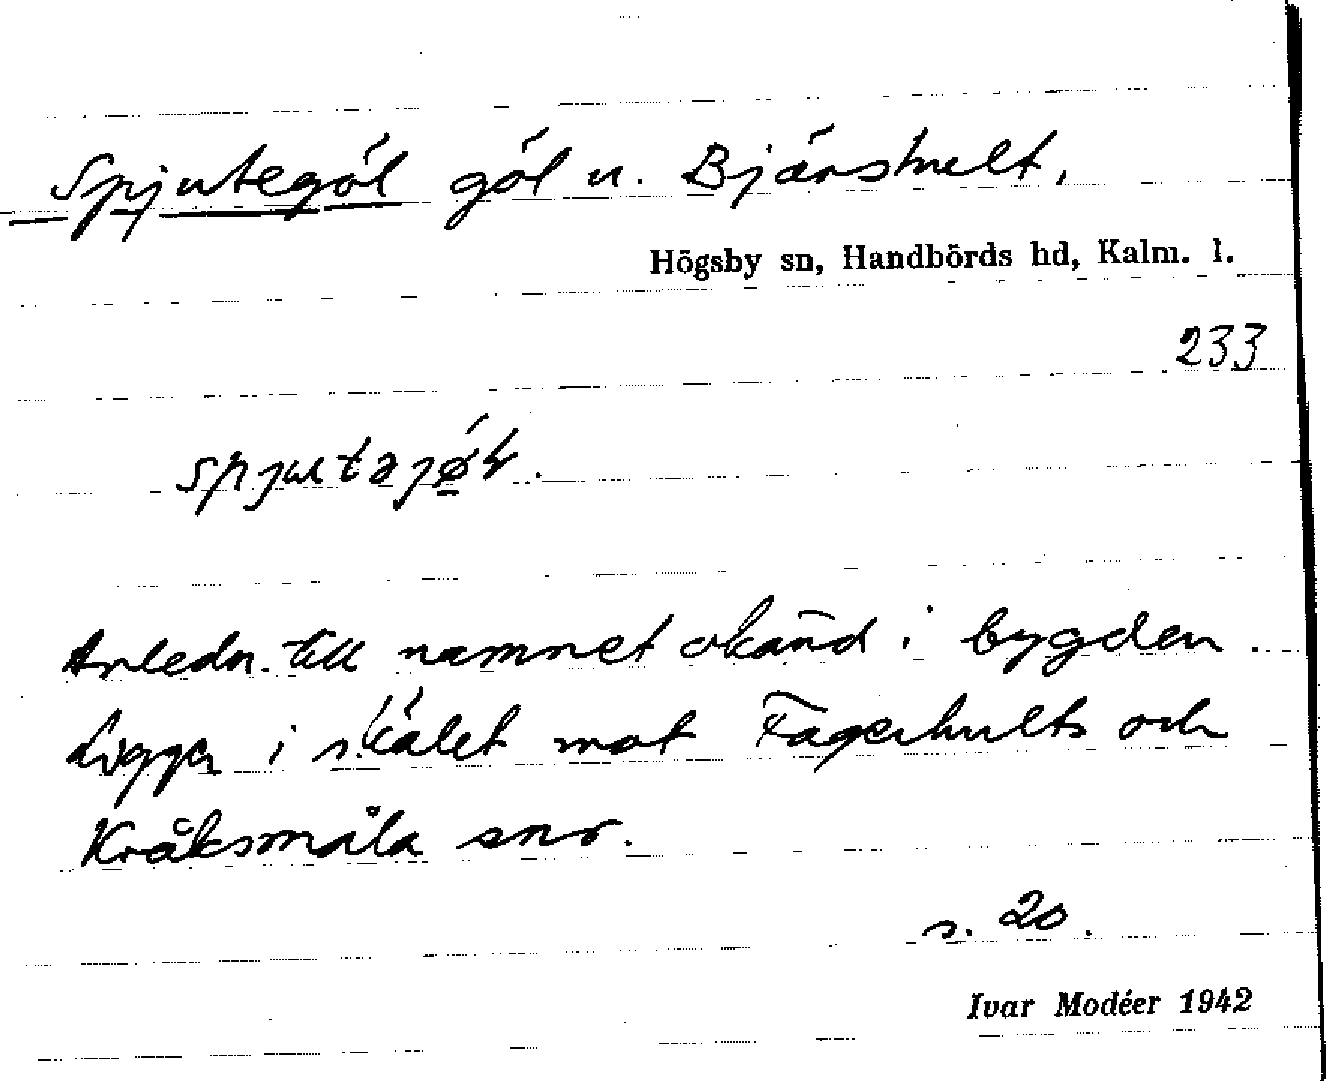 Spjutegöl göl u. Bjärshult.
Högsby sn, Handbörds hd, Kalm. l.
233
spjutəjǿ̱ɫ.
Anledn. till namnet okänd i bygden.
Ligger i skälet mot Fagerhults och
Kråksmåla snr.
s. 20.
Ivar Modéer 1942